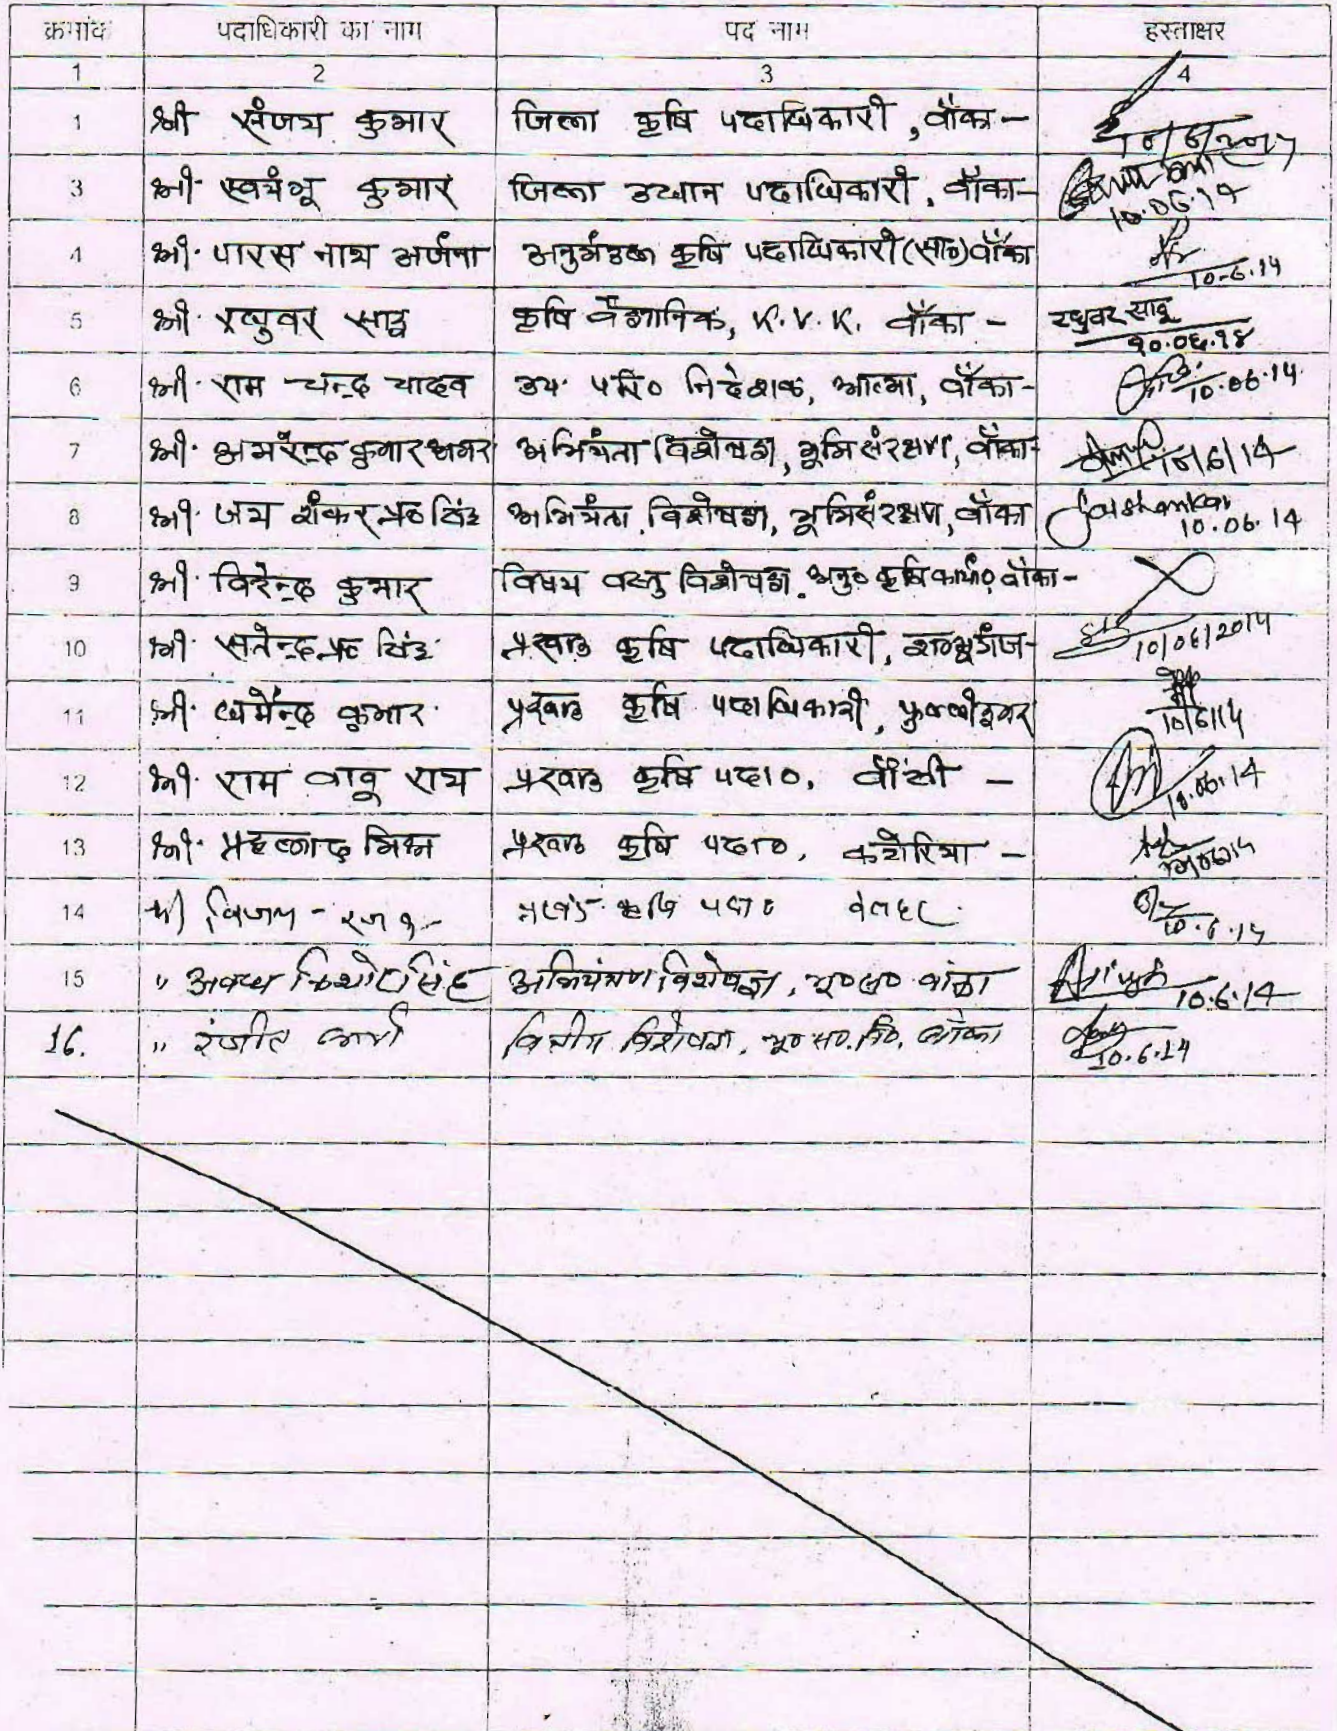 क्रमांक पदाधिकारी का नाम पद नाम हस्ताक्षर
1 2 3 4
1 श्री संजय कुमार जिला कृषि पदाधिकारी, बाँका -
3 श्री स्वयंभू कुमार जिला उद्यान पदाधिकारी, बाँका - 10.06.14
4 श्री पारस नाथ अनुमंडल कृषि पदाधिकारी (सा०) बाँका 10-6-14
5 श्री रघुवर साहू कृषि वैज्ञानिक, K.V.K. बाँका - रघुवर साहू
१०.०६.१४
6 श्री राम चन्द्र यादव उप परि० निदेशक, आत्मा, बाँका - 10.06.14
7 श्री अमरेन्द्र कुमार अमर अभियंता विशेषज्ञ, भूमि संरक्षण, बाँका - 10/6/14
8 श्री जय शंकर प्र० सिंह अभियंता विशेषज्ञ, भूमि संरक्षण, बाँका Jaishankar
10.06.14
9 श्री विरेन्द्र कुमार विषय वस्तु विशेषज्ञ अनु० कृषि कार्या०, बाँका -
10 श्री सतेन्द्र प्र० सिंह प्रखण्ड कृषि पदाधिकारी, शम्भूगंज - 10/06/2014
11 श्री धर्मेन्द्र कुमार प्रखण्ड कृषि पदाधिकारी, फुल्लीडुमर 10/6/14
12 श्री राम बाबु राय प्रखण्ड कृषि पदा०, बौंसी - 10.06.14
13 श्री प्रहलाद मिश्र प्रखण्ड कृषि पदा०, कटोरिया -
14 श्री विजय प्रखंड कृषि पदा० बेलहर 10.6.14
15 " अवध किशोर सिंह अभियंत्रण विशेषज्ञ, भू० सं० बांका 10.6.14
16. " रंजीत वित्तीय विशेषज्ञ, भू० सं. बाँका 10.6.14